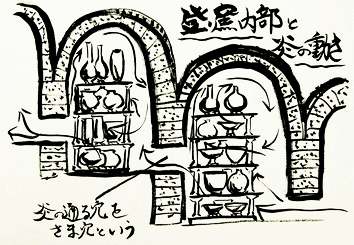 登窯内部と
炎の動き
炎の通る穴を
さま穴という